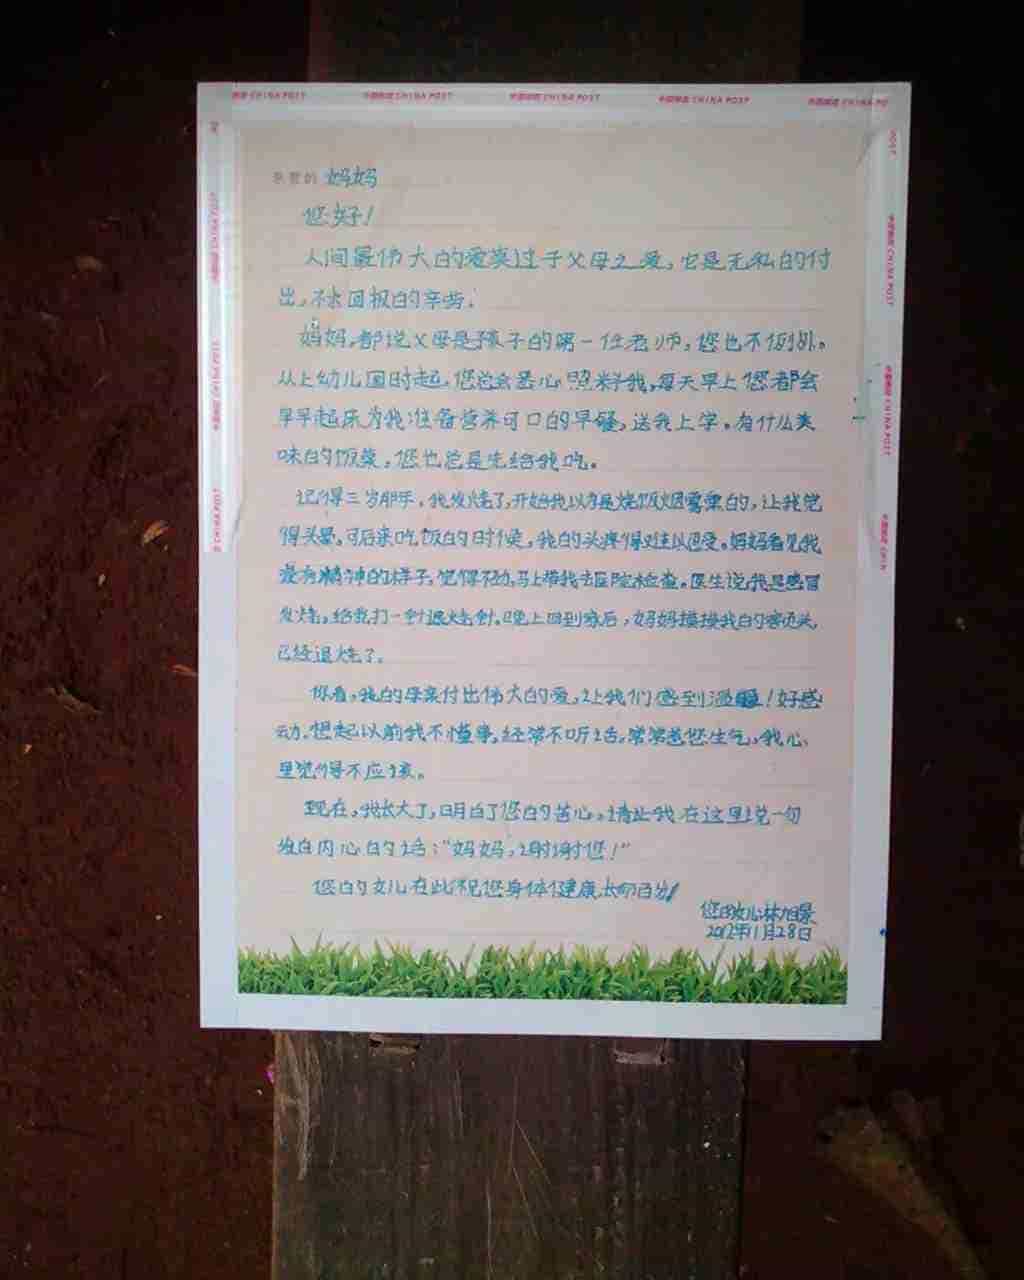 中国邮政 CHINA POST 中国邮政 CHINA POST 中国邮政 CHINA POST 中国邮政 CHINA POST 中国邮政 CHINA PO
亲爱的 妈妈
您好！
人间最伟大的爱莫过于父母之爱，它是无私的付
出，不求回报的辛劳。
妈妈，都说父母是孩子的第一任老师，您也不例外。
从上幼儿园时起，您总会悉心照料我，每天早上您都会
早早起床为我准备营养可口的早餐，送我上学。有什么美
味的饭菜，您也总是先给我吃。
记得三岁那年，我发烧了，开始我以为是烧饭烟雾熏的，让我觉
得头晕。可后来吃饭的时候，我的头疼得难以忍受。妈妈看见我
没有精神的样子，觉得不妙，马上带我去医院检查。医生说我是感冒
发烧，给我打一针退烧针。晚上回到家后，妈妈摸摸我的额头
已经退烧了。
你看，我的母亲付出伟大的爱，让我们感到温暖！好感
动。想起以前我不懂事，经常不听话，常常惹您生气，我心
里觉得不应该。
现在，我长大了，明白了您的苦心。请让我在这里说一句
发自内心的话：“妈妈，谢谢您！”
您的女儿在此祝您身体健康，长命百岁！
您的女儿：林旭景
2012年11月28日